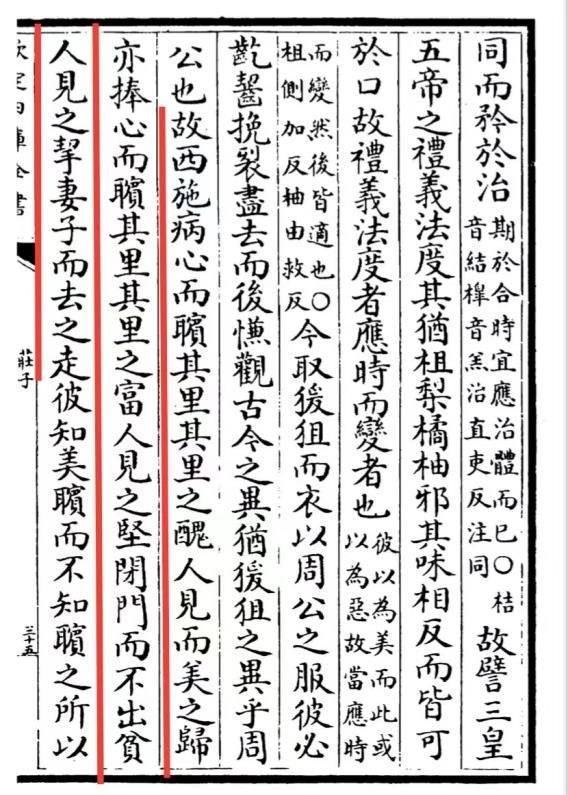 同而矜於治期於合時宜應治體而已○桔音結槹音羔治直吏反注同故譬三皇
五帝之禮義法度其猶柤梨橘柚邪其味相反而皆可
於口故禮義法度者應時而變者也彼以為美而此或以為惡故當應時
而變然後皆適也○柤側加反柚由救反今取猨狙而衣以周公之服彼必
齕齧挽裂盡去而後慊觀古今之異猶猨狙之異乎周
公也故西施病心而矉其里其里之醜人見而美之歸
亦捧心而矉其里其里之富人見之堅閉門而不出貧
人見之挈妻子而去之走彼知美矉而不知矉之所以
欽定四庫全書
莊子
三十五